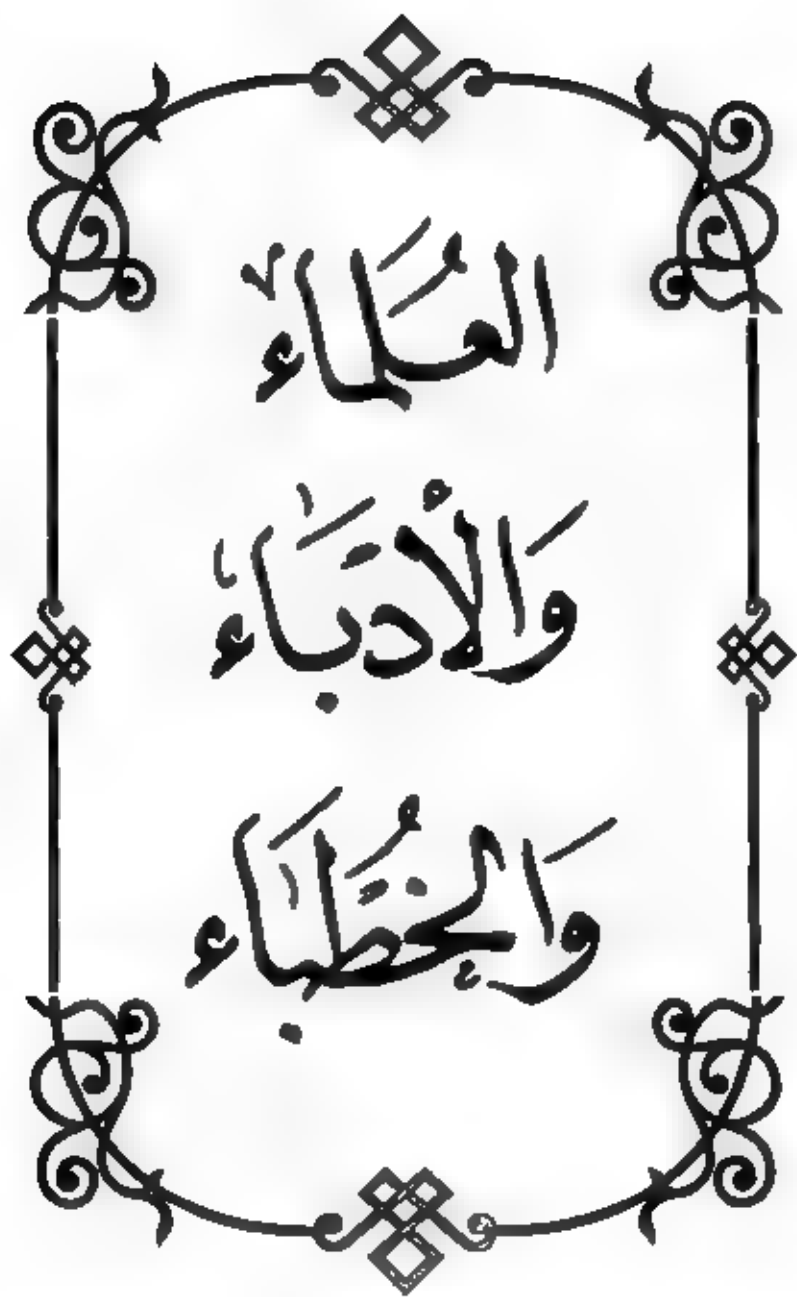 العُلَماء
وَالأُدَبَاء
وَالخُطَبَاء